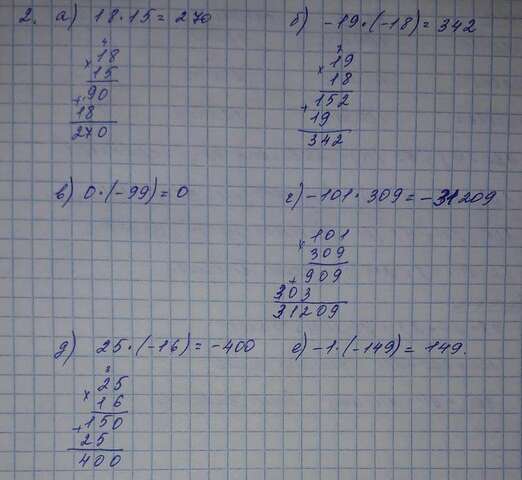 2. а) 18·15=270
4
18
× 15
90
+ 18
270
б) -19·(-18)=342
7
19
× 18
152
+ 19
342
в) 0·(-99)=0
г) -101·309=-31209
101
× 309
909
+ 303
31209
д) 25·(-16)=-400
3
25
× 16
150
+ 25
400
е) -1·(-149)=149.